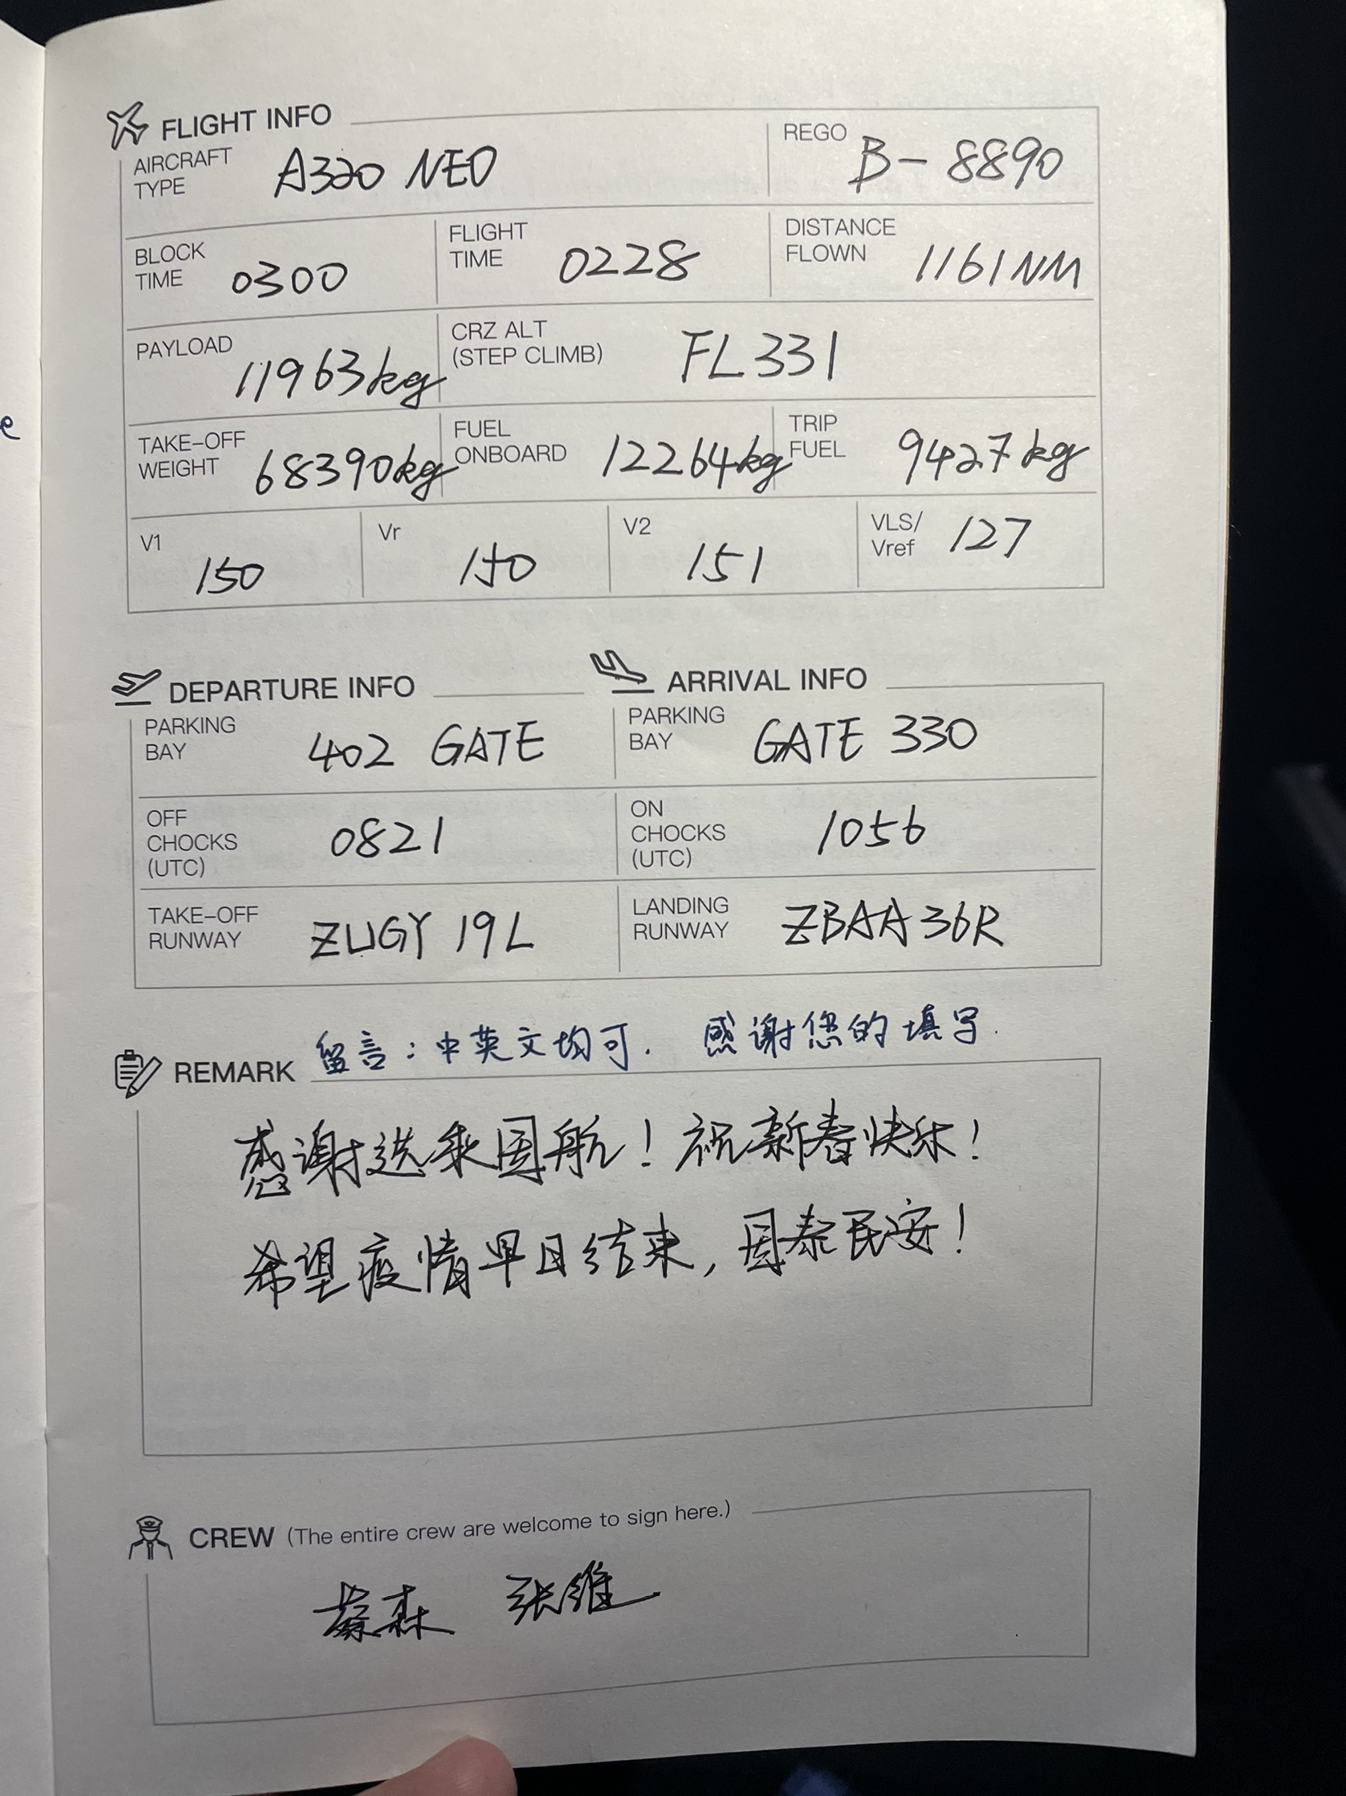 FLIGHT INFO
AIRCRAFT TYPE A320 NEO
REGO B-8890
BLOCK TIME 0300
FLIGHT TIME 0228
DISTANCE FLOWN 1161NM
PAYLOAD 11963kg
CRZ ALT (STEP CLIMB) FL331
TAKE-OFF WEIGHT 68390kg
FUEL ONBOARD 12264kg
TRIP FUEL 9427kg
V1 150
Vr 150
V2 151
VLS/Vref 127
DEPARTURE INFO
ARRIVAL INFO
PARKING BAY 402 GATE
PARKING BAY GATE 330
OFF CHOCKS (UTC) 0821
ON CHOCKS (UTC) 1056
TAKE-OFF RUNWAY ZUGY 19L
LANDING RUNWAY ZBAA 36R
REMARK 留言:中英文均可. 感谢您的填写.
感谢选乘国航!祝新春快乐!
希望疫情早日结束,国泰民安!
CREW (The entire crew are welcome to sign here.)
蔡森 张维
e